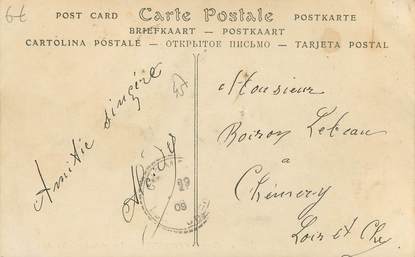 6€
POST CARD Carte Postale POSTKARTE
BRIEFKAART — POSTKAART
CARTOLINA POSTALE — ОТКРЫТОЕ ПИСЬМО — TARJETA POSTAL
Amitié sincère
Monsieur
Boiron Lebeau
à
Chémery
Loir et Cher
08